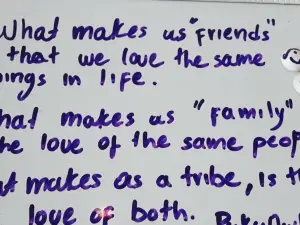 What makes us "friends"
that we love the same
ings in life.
hat makes as "family"
he love of the same peop
t makes as a tribe, is t
love of both.